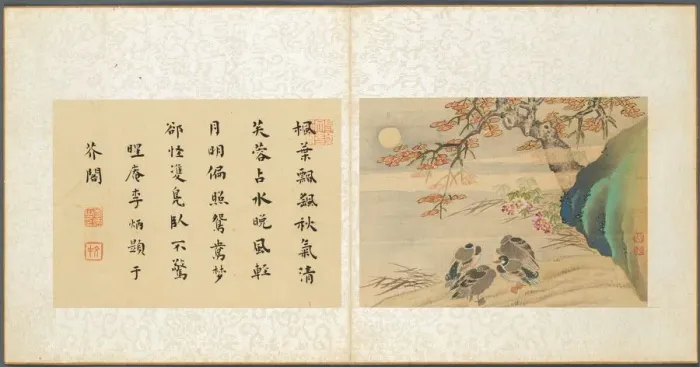 楓葉飄颻秋氣清
芙蓉占水晚風輕
月明偏照鴛鴦梦
卻怪雙鳧臥不驚
庵李炳題于
芥閣